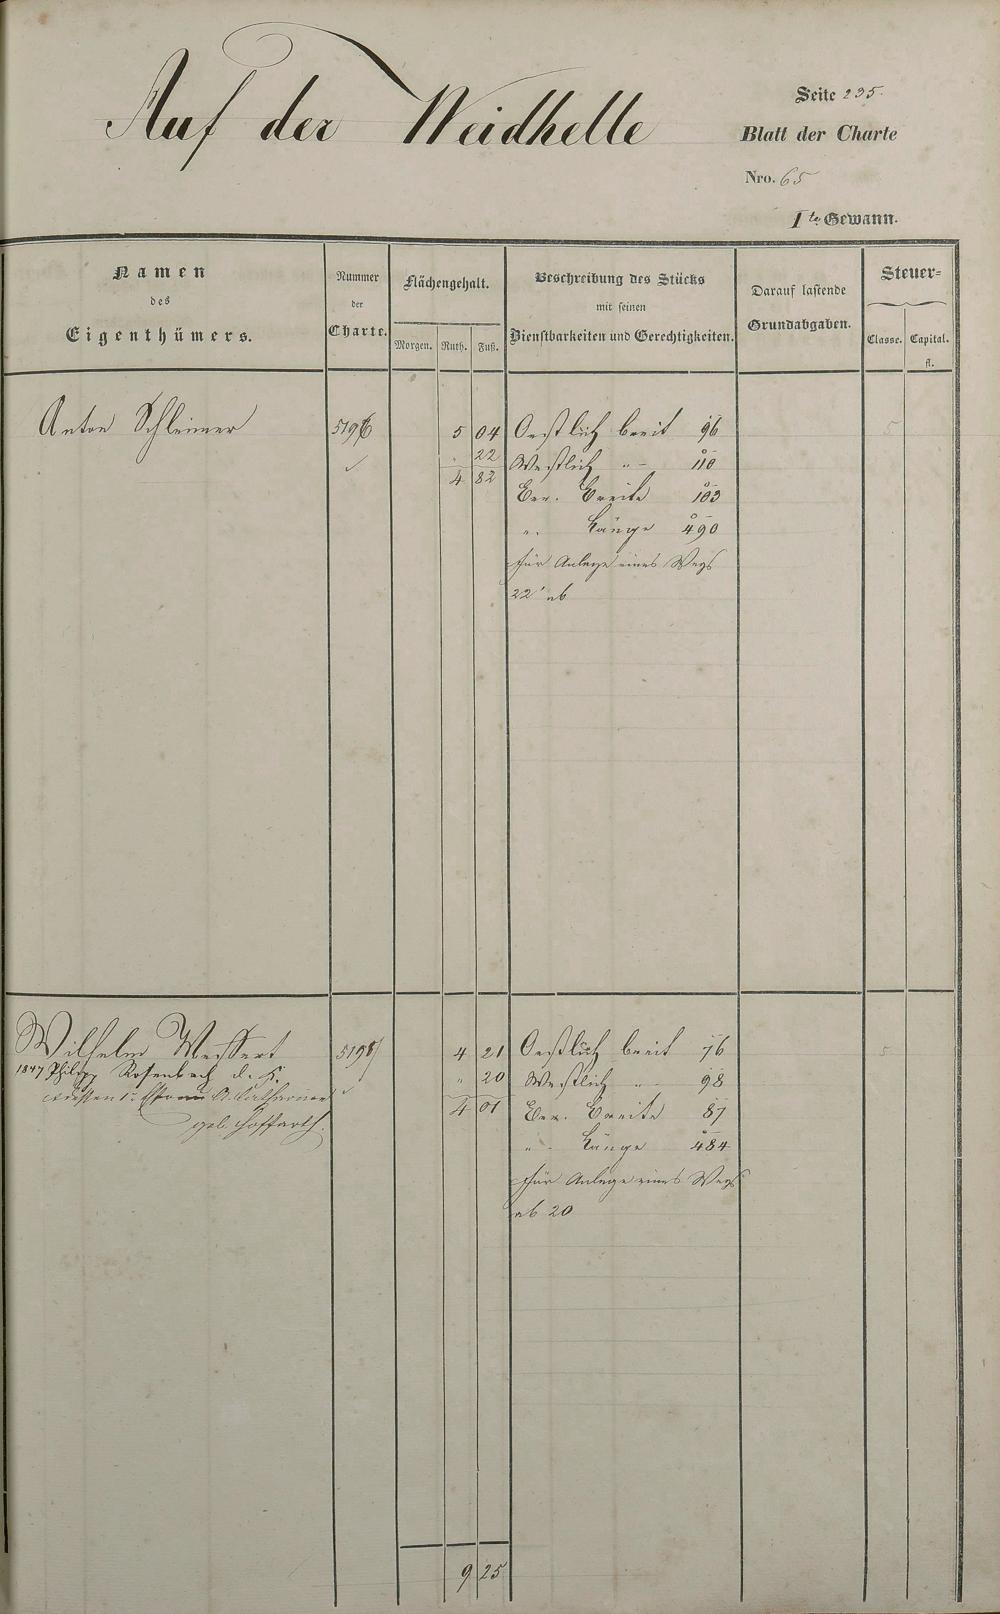 Auf der Weidhelle
Seite 235.
Blatt der Charte
Nro. 65
1te Gewann.
Namen
des
Eigenthümers.
Nummer
der
Charte.
Flächengehalt.
Morgen. Ruth. Fuß.
Beschreibung des Stücks
mit seinen
Dienstbarkeiten und Gerechtigkeiten.
Darauf lastende
Grundabgaben.
Steuer-
Classe. Capital.
fl.
Anton Schleimer 5196 5 04 Oestlich breit 96 5
22 Westlich " 110
4 82 Ber. Breite 103
" Länge 490
für Anlage eines Wegs
22' ab
Wilhelm Weissert 5198 4 21 Oestlich breit 76 5
1847 Philipp Rosenbach d. K. " 20 Westlich " 98
dessen Catharina 4 01 Ber. Breite 87
geb. Hoffarth. " Länge 484
für Anlage eines Wegs
ab 20
9 25